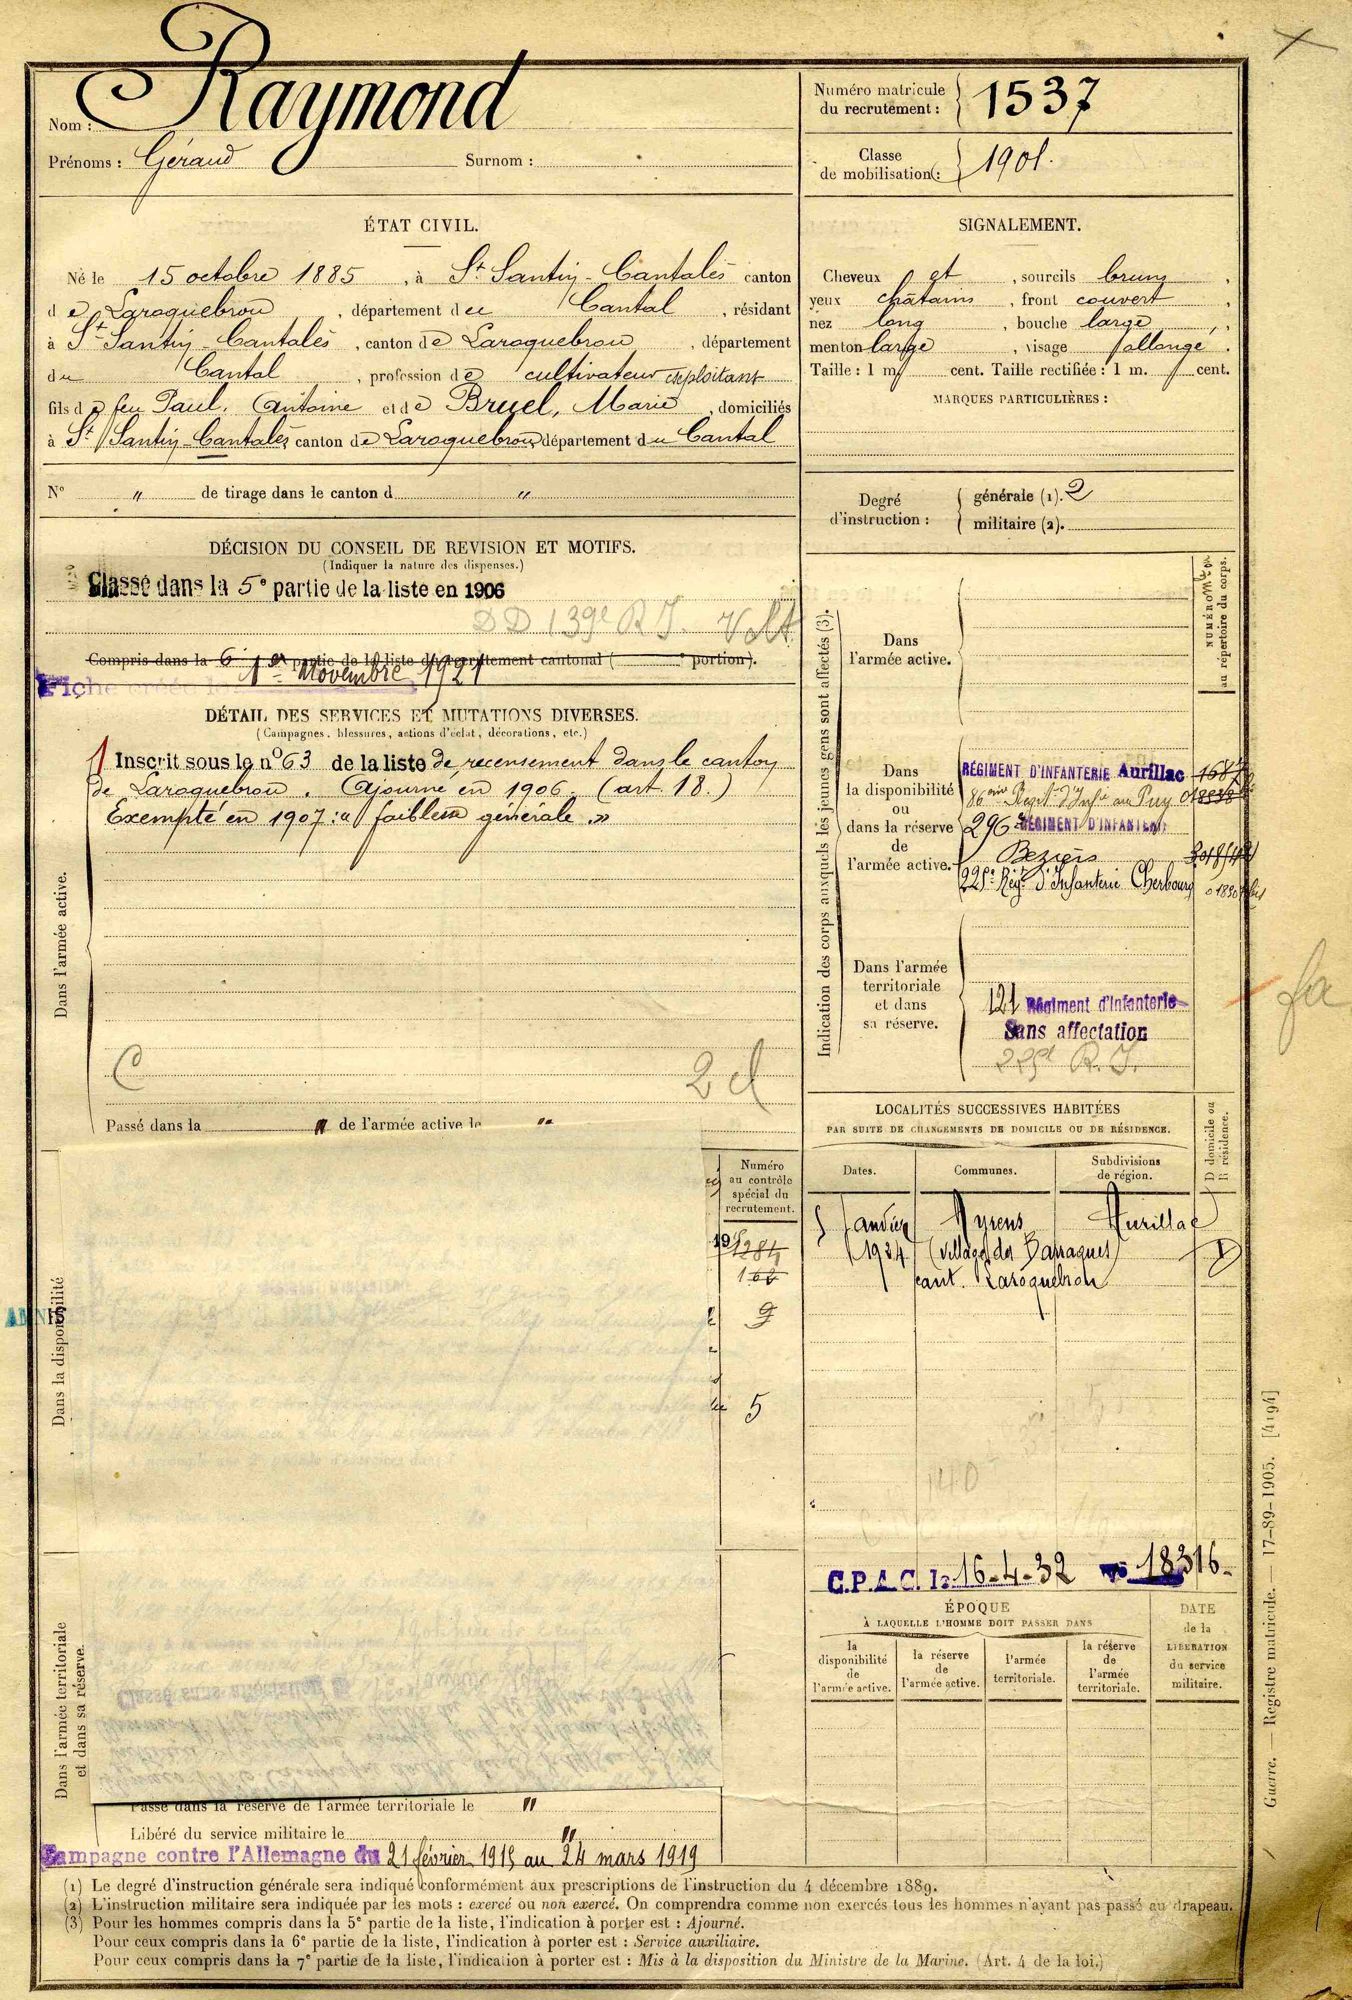 Nom : Raymond
Prénoms : Géraud Surnom :
Numéro matricule
du recrutement : 1537
Classe
de mobilisation : 1901.
ÉTAT CIVIL.
Né le 15 octobre 1885, à St Santin-Cantalès canton
de Laroquebrou, département du Cantal, résidant
à St Santin-Cantalès, canton de Laroquebrou, département
du Cantal, profession de cultivateur exploitant
fils de feu Paul, Antoine et de Bruel, Marie, domiciliés
à St Santin-Cantalès canton de Laroquebrou, département du Cantal
N° " de tirage dans le canton d "
SIGNALEMENT.
Cheveux et, sourcils bruns,
yeux châtains, front couvert,
nez long, bouche large,
menton large, visage allongé.
Taille : 1 m cent. Taille rectifiée : 1 m. cent.
MARQUES PARTICULIÈRES :
Degré
d'instruction :
générale (1). 2
militaire (2).
DÉCISION DU CONSEIL DE REVISION ET MOTIFS.
(Indiquer la nature des dispenses.)
Classé dans la 5e partie de la liste en 1906
DD 139e R.I.
Compris dans la 6e partie de la liste du recrutement cantonal ( e portion).
Fiche créée le 1er Novembre 1921
DÉTAIL DES SERVICES ET MUTATIONS DIVERSES.
(Campagnes, blessures, actions d'éclat, décorations, etc.)
Inscrit sous le n° 63 de la liste de recensement dans le canton
de Laroquebrou. Ajourné en 1906. (art 18.)
Exempté en 1907 : "faiblesse générale"
Dans l'armée active.
C
2 d
Passé dans la " de l'armée active le "
Indication des corps auxquels les jeunes gens sont affectés (3).
NUMÉRO
au répertoire du corps.
Dans
l'armée active.
Dans
la disponibilité
ou
dans la réserve
de
l'armée active.
RÉGIMENT D'INFANTERIE Aurillac
86ème Régt d'Infie au Puy
296 RÉGIMENT D'INFANTERIE
Beziers
225e Régt d'Infanterie Cherbourg
Dans l'armée
territoriale
et dans
sa réserve.
121 Régiment d'Infanterie
Sans affectation
225e R.I.
fa
LOCALITÉS SUCCESSIVES HABITÉES
PAR SUITE DE CHANGEMENTS DE DOMICILE OU DE RÉSIDENCE.
D domicile ou
R résidence.
Dates. Communes. Subdivisions
de région.
5 Janvier Ayrens Aurillac
1924 (village des Barraques) D
cant. Laroquebrou
Numéro
au contrôle
spécial du
recrutement.
1284
9
5
AMNIS
Dans la disponibilité
Dans l'armée territoriale
et dans sa réserve.
C.P.A.C. le 16-4-32 n° 18316
ÉPOQUE
À LAQUELLE L'HOMME DOIT PASSER DANS
DATE
de la
LIBÉRATION
du service
militaire.
la
disponibilité
de
l'armée active.
la réserve
de
l'armée active.
l'armée
territoriale.
la réserve
de
l'armée
territoriale.
Passé dans la réserve de l'armée territoriale le "
Libéré du service militaire le "
Campagne contre l'Allemagne du 21 février 1915 au 24 mars 1919
(1) Le degré d'instruction générale sera indiqué conformément aux prescriptions de l'instruction du 4 décembre 1889.
(2) L'instruction militaire sera indiquée par les mots : exercé ou non exercé. On comprendra comme non exercés tous les hommes n'ayant pas passé au drapeau.
(3) Pour les hommes compris dans la 5e partie de la liste, l'indication à porter est : Ajourné.
Pour ceux compris dans la 6e partie de la liste, l'indication à porter est : Service auxiliaire.
Pour ceux compris dans la 7e partie de la liste, l'indication à porter est : Mis à la disposition du Ministre de la Marine. (Art. 4 de la loi.)
Guerre. — Registre matricule. — 17-89-1905. [4194]